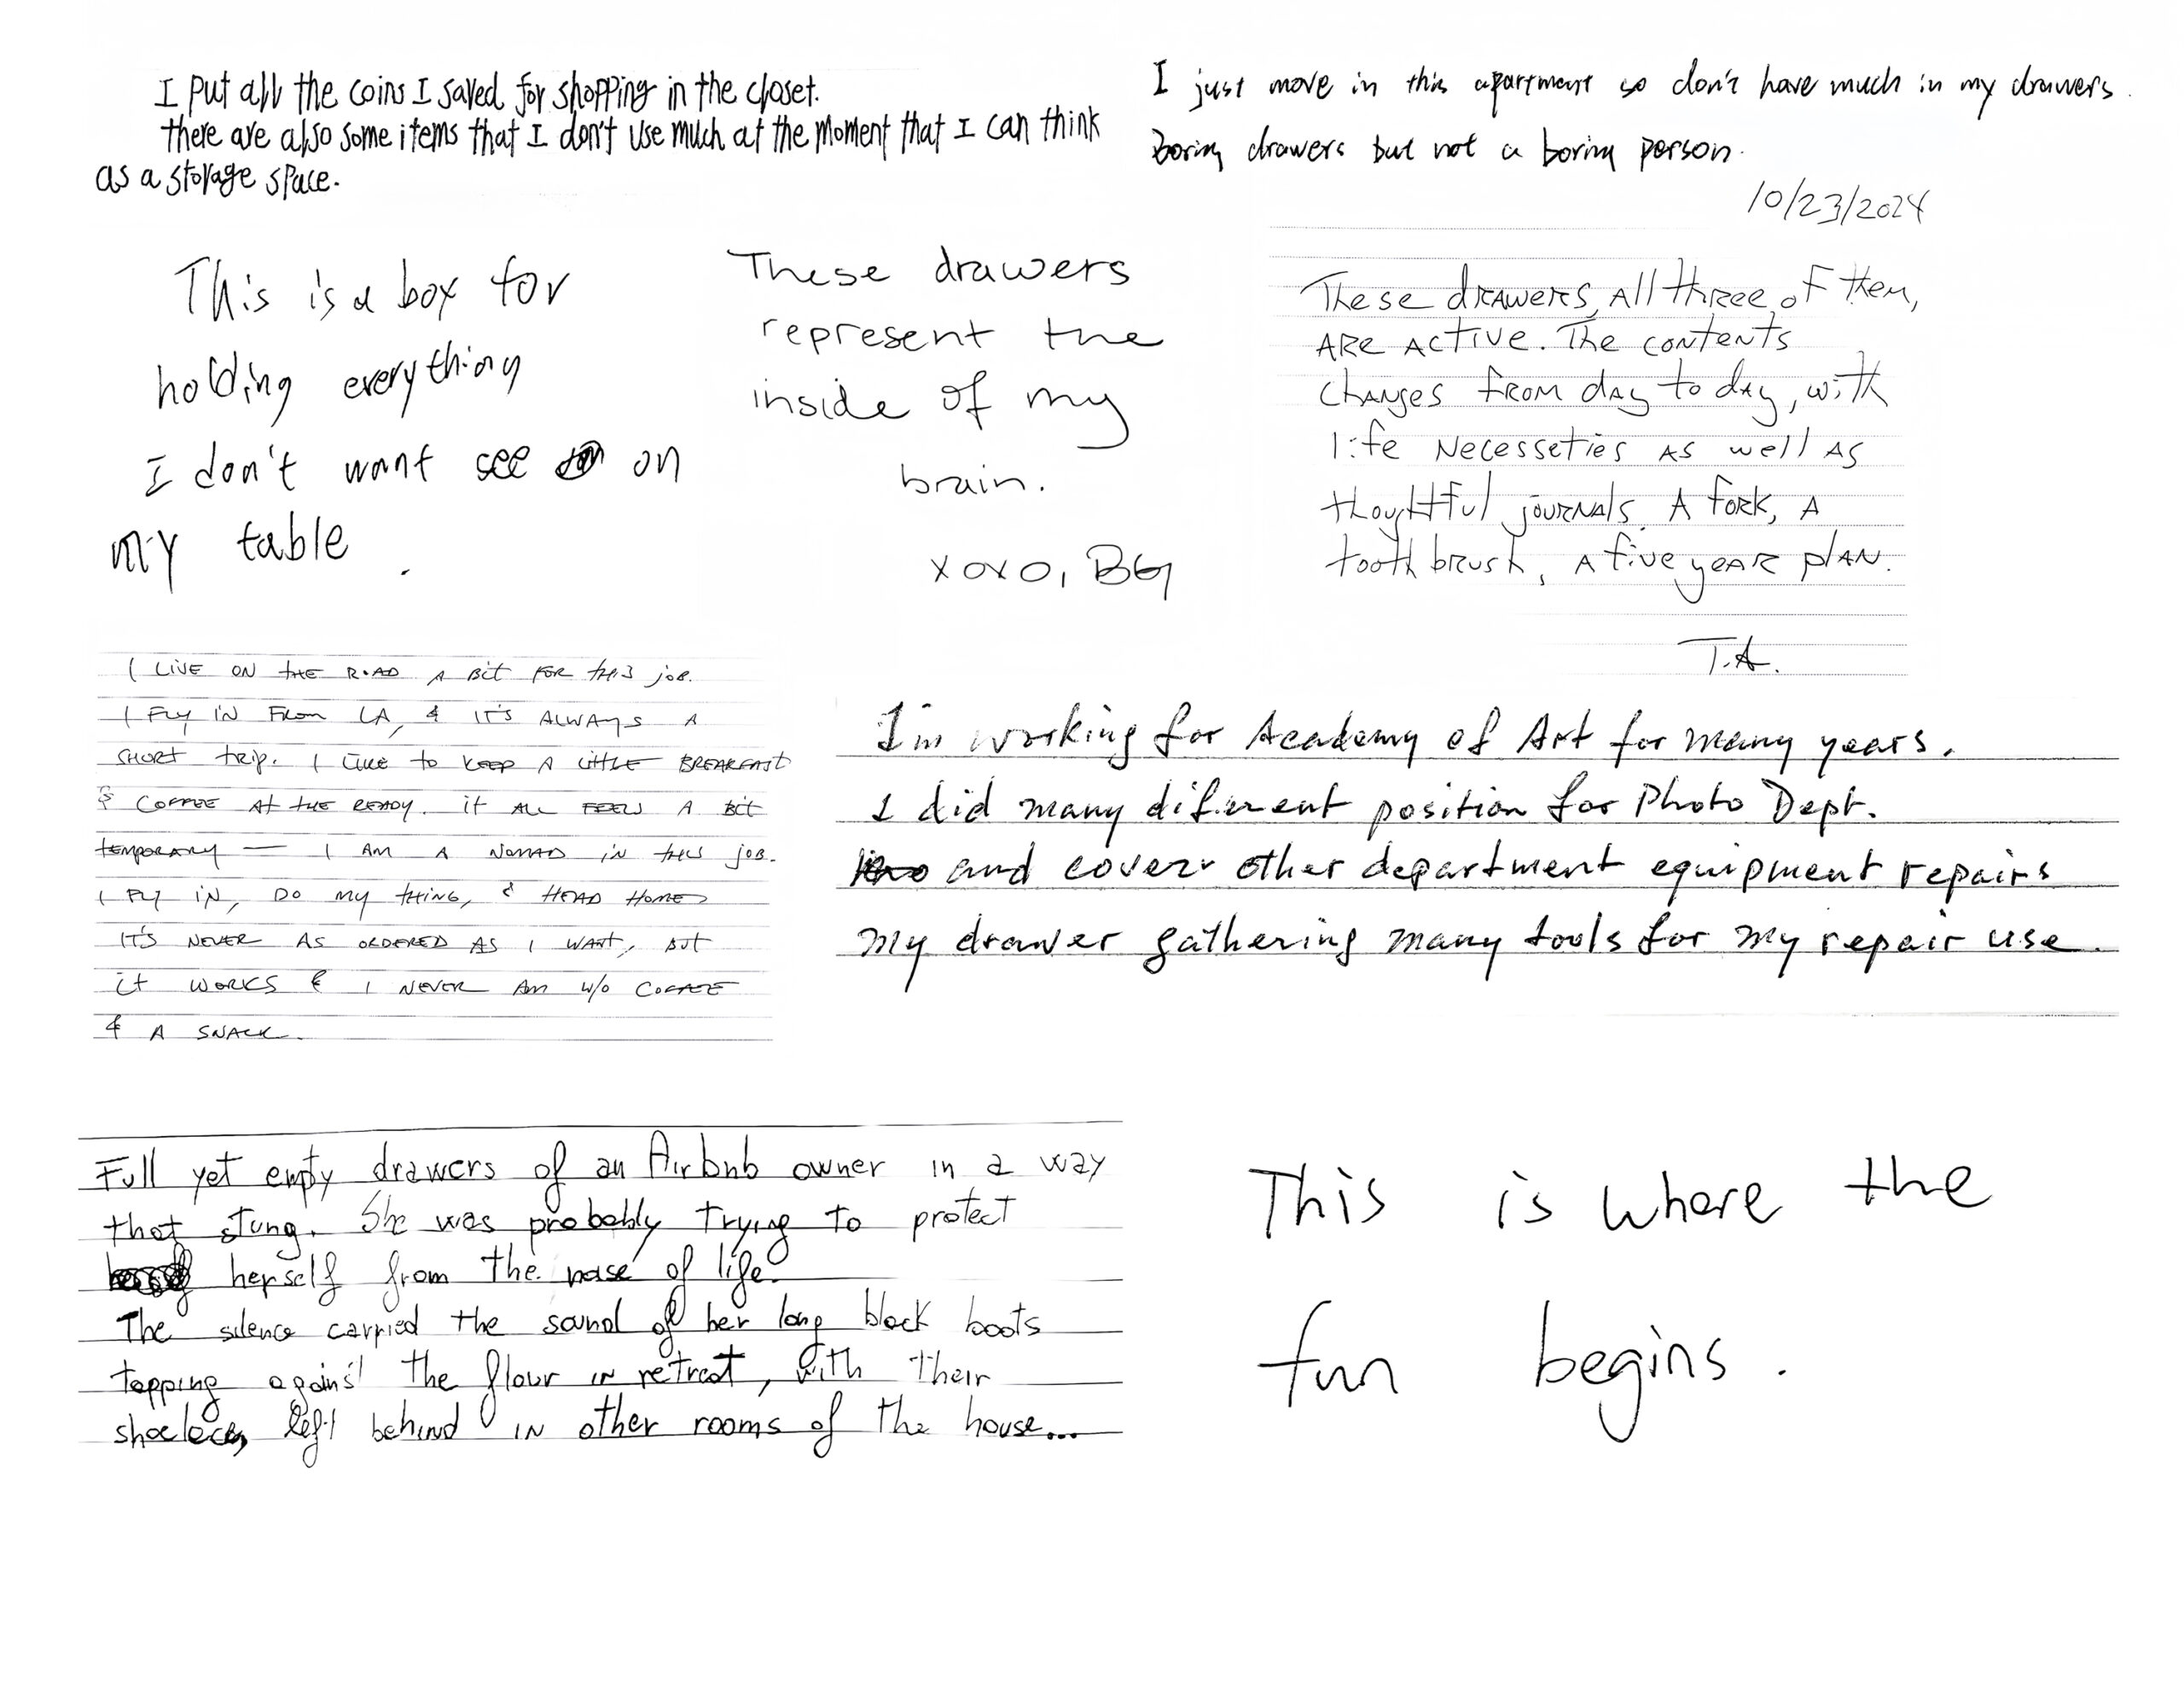 I put all the coins I saved for shopping in the closet.
there are also some items that I don't use much at the moment that I can think
as a storage space.
I just move in this apartment so don't have much in my drawers.
Boring drawers but not a boring person.
This is a box for
holding everything
I don't want see on
my table.
These drawers
represent the
inside of my
brain.
xoxo, BG
10/23/2024
These drawers, all three of them,
are active. The contents
changes from day to day, with
life necesseties as well as
thoughtful journals. A fork, a
toothbrush, a five year plan.
T.A.
I LIVE ON THE ROAD A BIT FOR THIS JOB.
I FLY IN FROM LA, & IT'S ALWAYS A
SHORT TRIP. I LIKE TO KEEP A LITTLE BREAKFAST
& COFFEE AT THE READY. IT ALL FEELS A BIT
TEMPORARY — I AM A NOMAD IN THIS JOB.
I FLY IN, DO MY THING, & HEAD HOME
IT'S NEVER AS ORDERED AS I WANT, BUT
IT WORKS & I NEVER AM W/O COFFEE
& A SNACK.
I'm working for Academy of Art for many years.
I did many different position for Photo Dept.
and cover other department equipment repairs
My drawer gathering many tools for my repair use.
Full yet empty drawers of an Airbnb owner in a way
that stung. She was probably trying to protect
herself from the noise of life.
The silence carried the sound of her long black boots
tapping against the flour in retreat, with their
shoelaces left behind in other rooms of the house...
This is where the
fun begins.